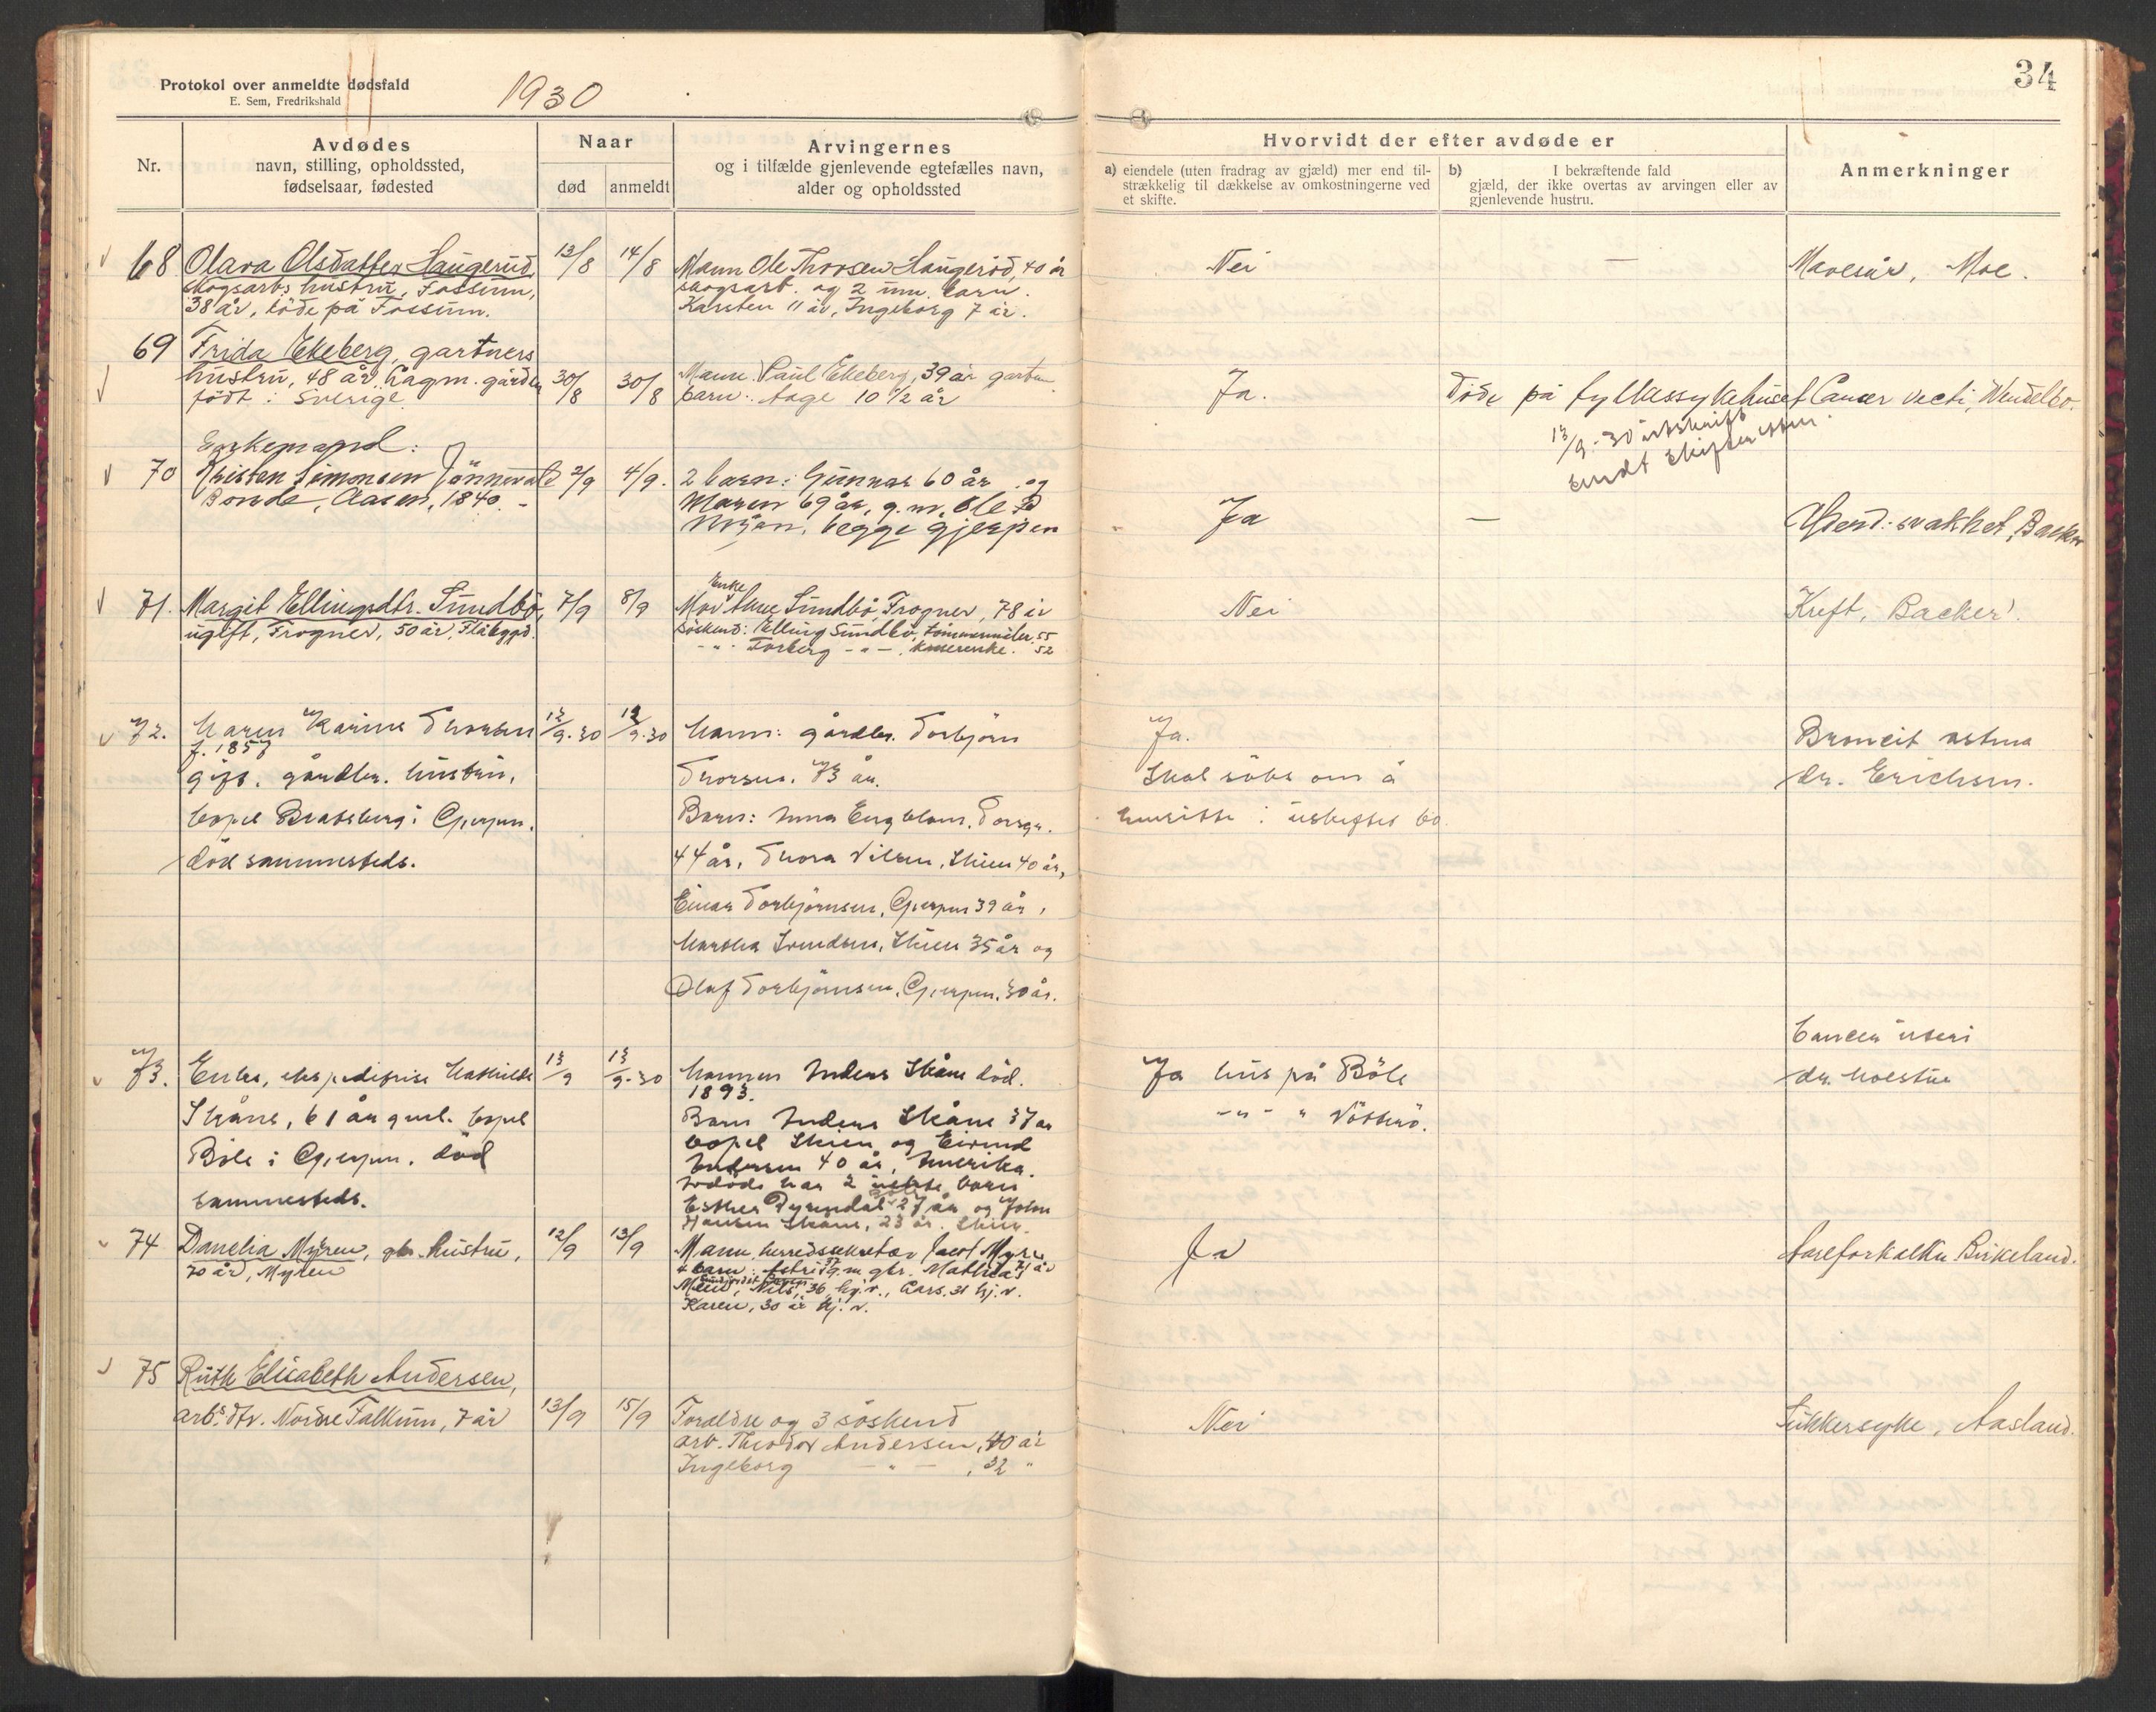 Protokol over anmeldte dødsfald
E. Sem, Fredrikshald
1930
34
Nr.
Avdødes
navn, stilling, opholdssted,
fødselsaar, fødested
Naar
død
anmeldt
Arvingernes
og i tilfælde gjenlevende egtefælles navn,
alder og opholdssted
Hvorvidt der efter avdøde er
a) eiendele (uten fradrag av gjæld) mer end til-
strækkelig til dækkelse av omkostningerne ved
et skifte.
b) I bekræftende fald
gjæld, der ikke overtas av arvingen eller av
gjenlevende hustru.
Anmerkninger
68 Olava Olsdatter Haugerud,
skogsarbs hustru, Fossum,
38 år, døde på Fossum.
13/8 14/8
Mann Ole Thorsen Haugerød, 40 år
skogsarb. og 2 um. barn.
Karsten 11 år, Ingeborg 7 år.
Nei
—
Mavesår, Moe.
69 Frida Ekeberg, gartners
hustru, 48 år, Lagm. gården
født i Sverige.
30/8 30/8
Mann: Paul Ekeberg, 39 år gartn.
barn: Aage 10 1/2 år
Ja.
Døde på fylkessykehuset Cancer recti, Wendelbo.
13/9-30 utskrift
sendt skifteretten.
Enkemand:
70 Kristen Simonsen Jönnevald
Bonde, Aasen, 1840. -
2/9 4/9.
2 barn: Gunnar 60 år og
Maren 69 år, g. m. Ole P.
begge Gjerpen
Ja
—
Alderd. svakhet, Backer
71. Margit Ellingsdtr. Sundbö,
ugift, Frogner, 50 år, Flåbygd.
7/9 8/9
Enke
Mor Anne Sundbö, Frogner, 78 år
søskend: Elling Sundbö, tømmermåler, 55
-"- Torbjørg -"- 52
Nei
Kreft, Backer.
72. Maren Karine Thorsen
f. 1857
gift. gårdbr. hustru,
bopel Bratsberg i Gjerpen.
død sammesteds.
12/9-30 12/9-30
Mann: gårdbr. Torbjörn
Thorsen, 73 år.
Barn: Anna Engblom, Porsgr.
44 år, Thora Nilsen, Skien 40 år,
Einar Torbjörnsen, Gjerpen 39 år,
Martha Svendsen, Skien 35 år og
Olaf Torbjörnsen, Gjerpen, 30 år.
Ja.
Skal søke om å
hensitte i uskiftet bo.
Broncit astma
dr. Erichsen.
73. Enke, ekspeditrise Mathilde
Skåne, 61 år gml. bopel
Böle i Gjerpen. død
sammesteds.
13/9 13/9-30
Mannen Anders Skåne död.
1893.
Barn Anders Skåne 37 år
bopel Skien og Eivind
Andersen 40 år, Amerika.
Avdøde har 2 uekte barn
Esther 27 år og John
Hansen Skåne, 23 år. Skien.
Ja hus på Böle
-"- " Nötterö.
Cancer uteri
dr. Holstue
74 Danelia Myren, gbr. hustru,
70 år, Myren
12/9 13/9
Mann, herredssekretær Jacob Myren
4 barn: g. m. gbr. Mathias
Nils, 36, hj.v., Lars. 31 hj.v.
Karen, 30 år hj. v.
Ja
Aareforkalkn. Birkeland.
75 Ruth Elisabeth Andersen,
arbs. dtr. Nordre Falkum, 7 år
13/9 15/9
Forældre og 3 søskend
arb. Theodor Andersen, 40 år
Ingeborg -"- , 32 "
Nei
Sukkersyke, Aasland.